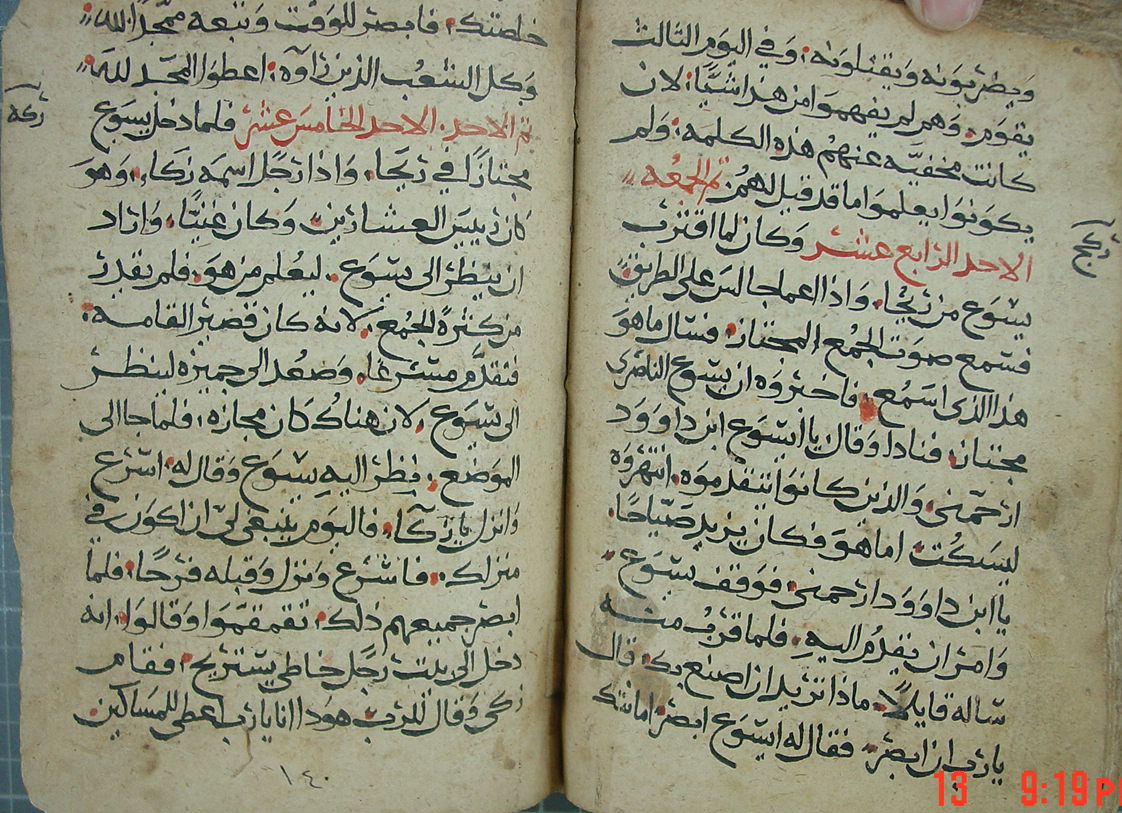 ويضربونه ويقتلونه؛ وفي اليوم الثالث
يقوم. وهم لم يفهموا من هذا شيًا؛ لان
كانت مخفيه عنهم هذه الكلمه؛ ولم
يكونوا يعلموا ما قد قيل لهم. تم الجمعه
الاحد الرابع عشر وكان لما اقترب
يسوع من ريحا، واذا اعما جالس على الطريق
فسمع صوت الجمع المجتاز؛ فسال ما هو
هذا الذي اسمع؛ فاخبروه ان يسوع الناصري
مجتاز؛ فنادا وقال يا ايسوع ابن داوود
ارحمني؛ والذين كانوا اتتقدموه، انتهروه
ليسكت اما هو فكان يزيد صياحا.
يا ابن داوود ارحمني؛ فوقف يسوع
وامر ان يقدم اليه. فلما قرب منه
ساله قايلًا، ماذا تريد ان اصنع بك؛ قال
يا رب ان ابصر؛ فقال له ايسوع ابصر؛ امانتك
خلصتك؛ فابصر للوقت وتبعه ممجدا لله
وكل الشعب الذين راوه؛ اعطوا المجد لله
تم الاحد. الاحد الخامس عشر فلما دخل يسوع
مجتازًا في ريحا، واذا رجل اسمه زكاء، وهو
كان رييس العشارين وكان غنيًا، واراد
ان ينظر الى يسوع. ليعلم من هو؛ فلم يقدر
من كثرة الجمع. لانه كان قصير القامه؛
فتقدم مسرعا، وصعد الى جميزه لينظر
الى يسوع، لان هناك كان مجازه؛ فلما جا الى
الموضع، نظر اليه يسوع وقال له؛ اسرع
وانزل يا زكا، فاليوم ينبغي لي ان اكون في
منزلك؛ فاسرع ونزل وقبله فرحًا؛ فلما
ابصر جميعهم ذلك؛ تقمقموا وقالوا؛ انه
دخل الى بيت رجل خاطي يستريح؛ فقام
زكى وقال للرب هودا انا يا رب اعطي للمساكين
١٤٠
13 9:19